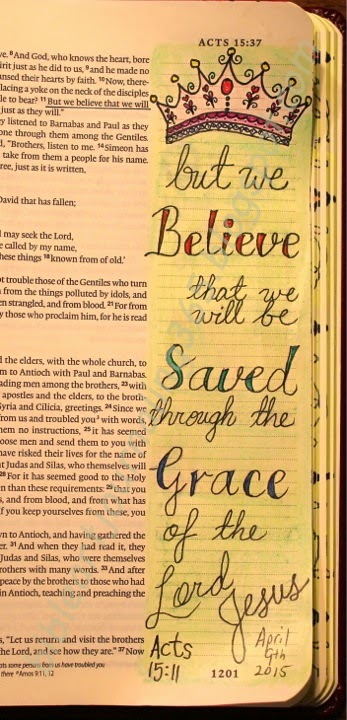 ACTS 15:37
ve. 8And God, who knows the heart, bore
irit just as he did to us, 9and he made no
nsed their hearts by faith. 10Now, there-
lacing a yoke on the neck of the disciples
le to bear? 11But we believe that we will
just as they will."
y listened to Barnabas and Paul as they
one through them among the Gentiles.
d, "Brothers, listen to me. 14Simeon has
take from them a people for his name.
ree, just as it is written,
David that has fallen;
d may seek the Lord,
e called by my name,
hese things 18known from of old.'
ot trouble those of the Gentiles who turn
from the things polluted by idols, and
en strangled, and from blood. 21For from
y those who proclaim him, for he is read
d the elders, with the whole church, to
m to Antioch with Paul and Barnabas.
ading men among the brothers, 23with
apostles and the elders, to the broth-
yria and Cilicia, greetings. 24Since we
rom us and troubled you with words,
hem no instructions, 25it has seemed
oose men and send them to you with
have risked their lives for the name of
t Judas and Silas, who themselves will
28For it has seemed good to the Holy
n than these requirements: 29that you
s, and from blood, and from what has
f you keep yourselves from these, you
wn to Antioch, and having gathered the
er. 31And when they had read it, they
Judas and Silas, who were themselves
rothers with many words. 33And after
peace by the brothers to those who had
in Antioch, teaching and preaching the
s, "Let us return and visit the brothers
the Lord, and see how they are." 37Now
ats some person from us have troubled you
there Amos 9:11, 12
but we
Believe
that we
will be
Saved
through the
Grace
of the
Lord
Jesus
Acts
15:11
April
9th
2015
1201